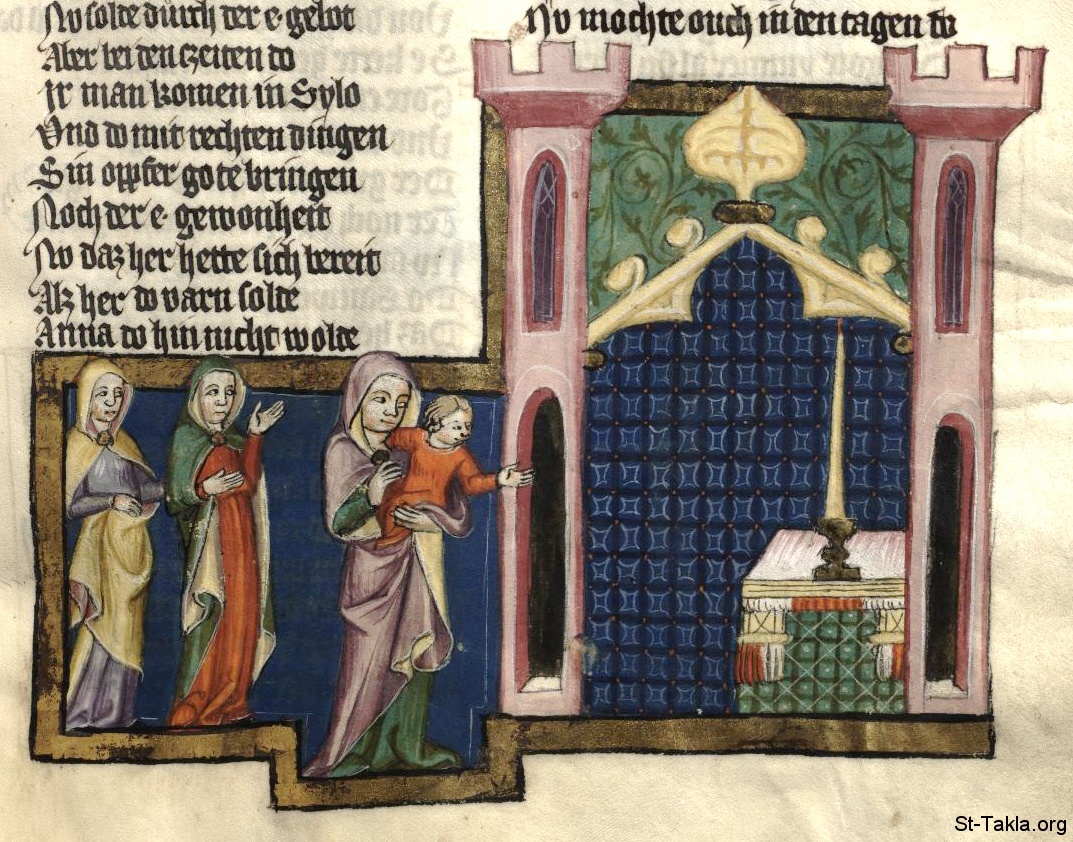 Nv solte durch der e · gelot
Aber bei den tzeiten do
Ir man komen in Sylo
Vnd do mit rechten dingen
Sin opfer gote bringen
Noch der e · gewonheit
Nv daz her hette sich bereit
Alz her do varn solte
Anna do hin nicht wolte
Nv mochte ouch in den tagen do
St-Takla.org